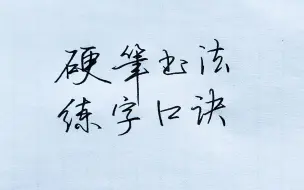 硬笔书法
练字口诀